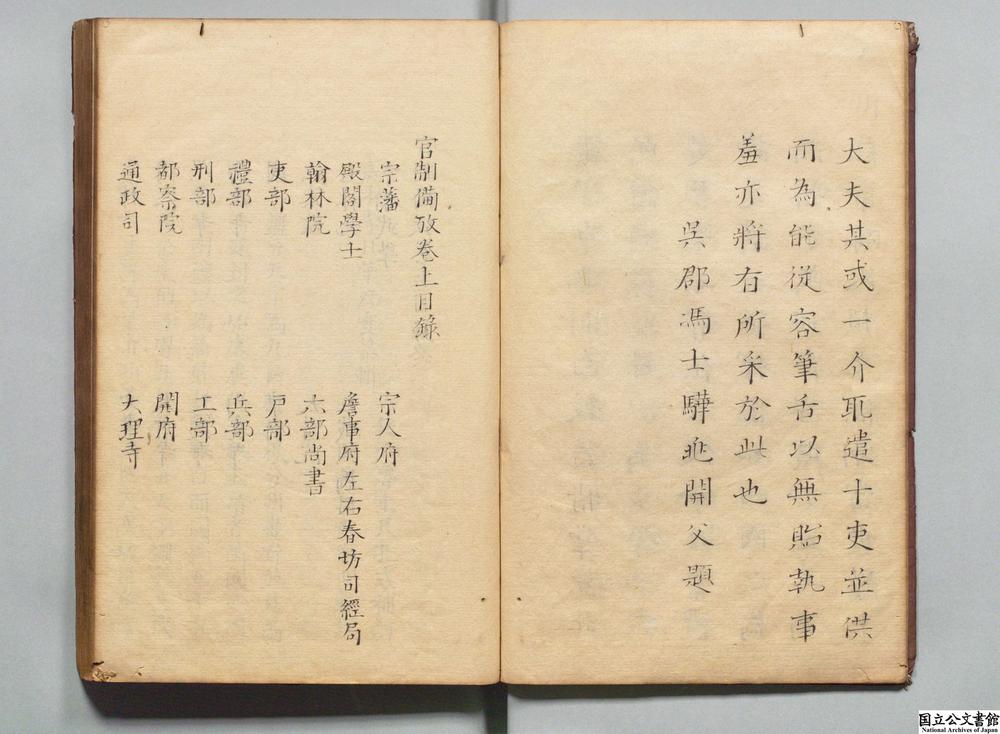 大夫其或一介耴遣十吏並供
而為能従容筆舌以無貽執事
羞亦將有所采於此也
吳郡馮士驊兆開父題
官制備攷卷上目錄
宗藩 宗人府
殿閣學士 詹事府左右春坊司經局
翰林院 六部尚書
吏部 戶部
禮部 兵部
刑部 工部
都察院 開府
通政司 大理寺
国立公文書館
National Archives of Japan